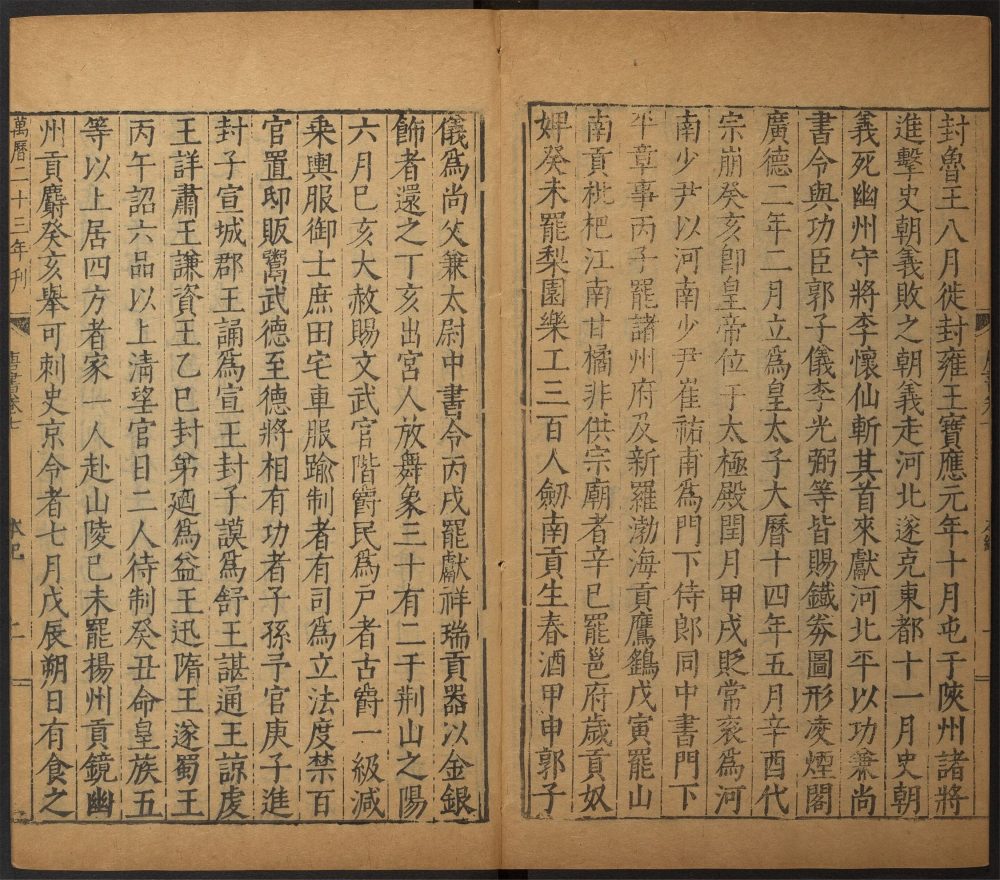 封魯王八月徙封雍王寶應元年十月屯于陝州諸將
進擊史朝義敗之朝義走河北遂克東都十一月史朝
義死幽州守將李懷仙斬其首來獻河北平以功兼尚
書令與功臣郭子儀李光弼等皆賜鐵券圖形凌煙閣
廣德二年二月立爲皇太子大曆十四年五月辛酉代
宗崩癸亥卽皇帝位于太極殿閏月甲戌貶常袞爲河
南少尹以河南少尹崔祐甫爲門下侍郎同中書門下
平章事丙子罷諸州府及新羅渤海貢鷹鷂戊寅罷山
南貢枇杷江南甘橘非供宗廟者辛巳罷邕府歲貢奴
婢癸未罷梨園樂工三百人劒南貢生春酒甲申郭子
儀爲尚父兼太尉中書令丙戌罷獻祥瑞貢器以金銀
飾者還之丁亥出宮人放舞象三十有二于荆山之陽
六月己亥大赦賜文武官階爵民爲戶者古爵一級減
乘輿服御士庶田宅車服踰制者有司爲立法度禁百
官置邸販鬻武德至德將相有功者子孫予官庚子進
封子宣城郡王誦爲宣王封子謨爲舒王諶通王諒虔
王詳肅王謙資王乙巳封弟迺爲益王迅隋王遂蜀王
丙午詔六品以上淸望官日二人待制癸丑命皇族五
等以上居四方者家一人赴山陵己未罷揚州貢鏡幽
州貢麝癸亥舉可刺史京令者七月戊辰朔日有食之
萬曆二十三年刊
唐書卷七
本紀
二